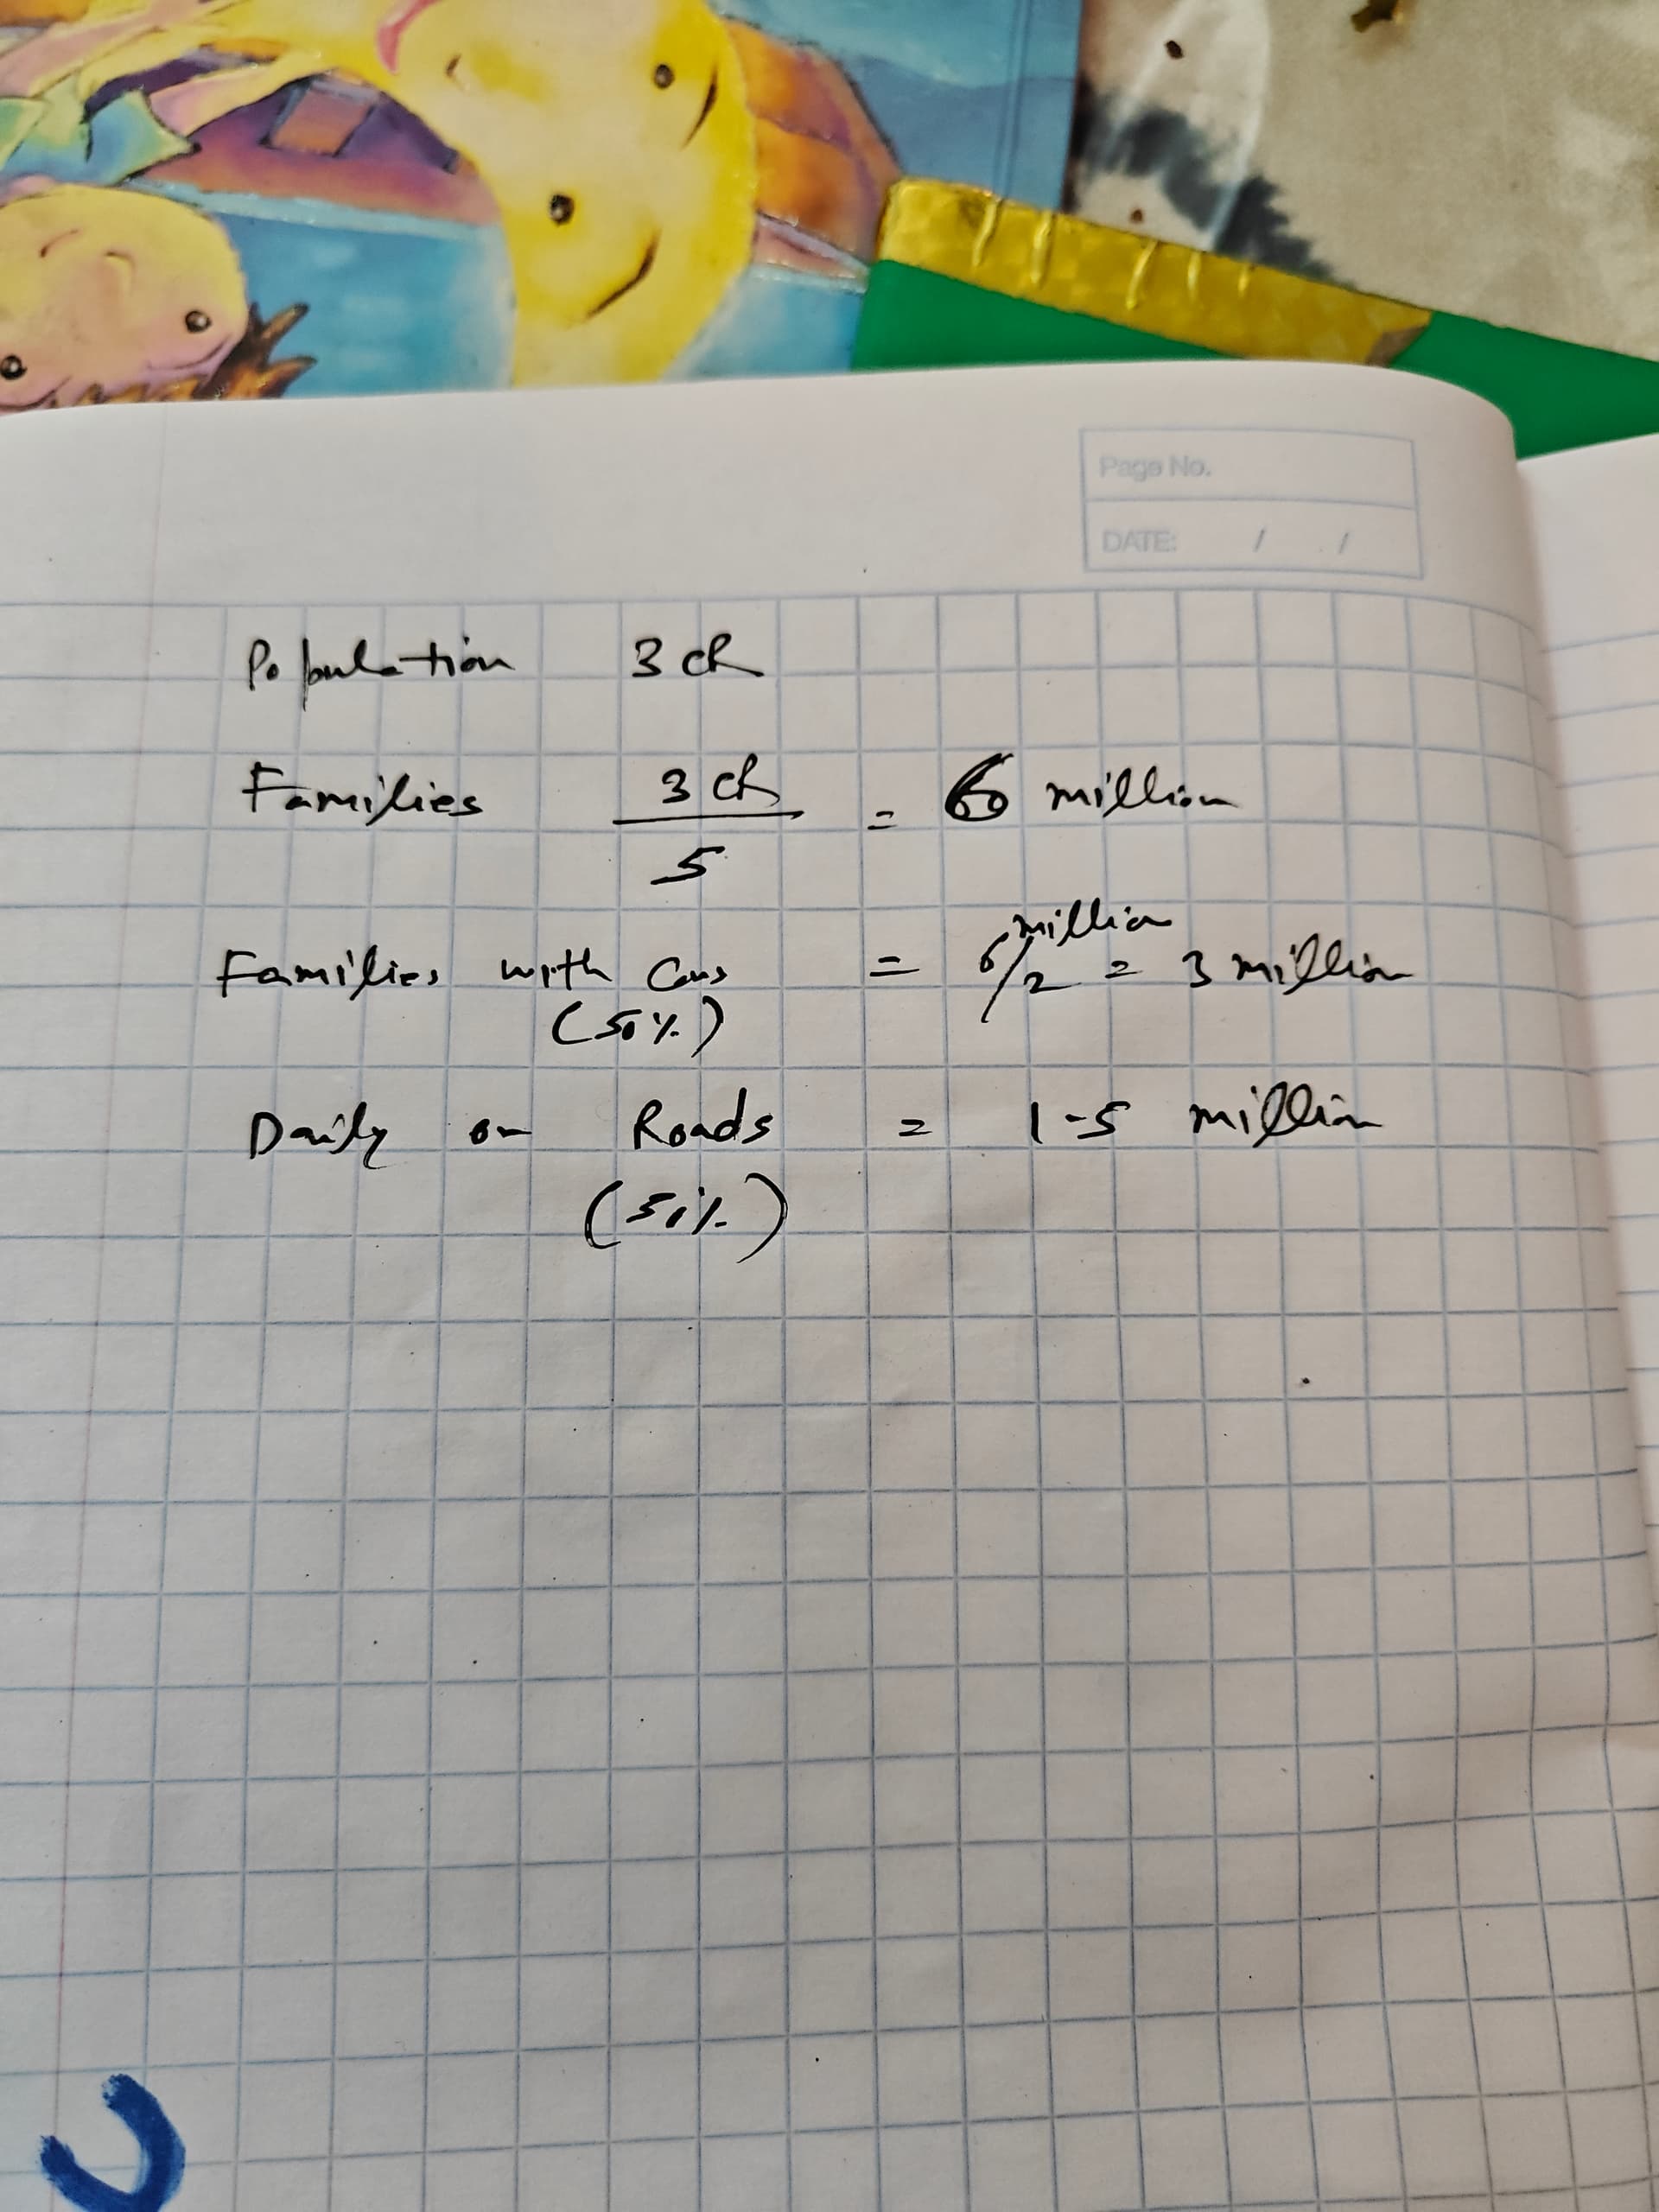 Page No.
DATE: / /
Population 3 CR
Families 3 CR / 5 = 6 million
Families with Cars = 6 million/2 = 3 million
(50%)
Daily on Roads = 1-5 million
(50%)